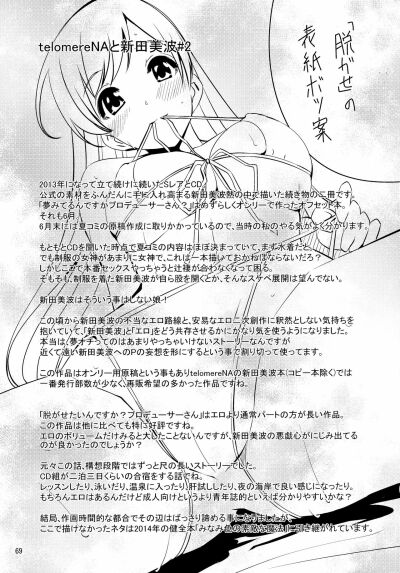 telomereNAと新田美波#2
「脱がせの
表紙ボツ案
2013年になって立て続けに続いたSレアとCD。
公式の素材をふんだんに手に入れ高まる新田美波熱の中で描いた続き物の二冊です。
「夢みてるんですかプロデューサーさん？」はめずらしくオンリーで作ったオフセット本。
それも6月。
6月末には夏コミの原稿作成に取りかかっているので、当時の私のやる気がよく分かります。
もともとCDを聞いた時点で夏コミの内容はほぼ決まっていて、まず水着だと。
でも制服の女神があまりに女神で、これは一本描いておかねばならないだろ？
しかしここで本番セックスやっちゃうと辻褄が合わなくって困る。
そもそも、制服を着た新田美波が自ら股を開くとか、そんなスケベ展開は望んでない。
新田美波はそういう事はしない娘！
この頃から新田美波の不当なエロ路線と、安易なエロ二次創作に釈然としない気持ちを
抱いていて、「新田美波」と「エロ」をどう共存させるかにかなり気を使うようになりました。
本当は、夢オチってのはあまりやっちゃいけないストーリーなんですが
近くて遠い新田美波へのPの妄想を形にするという事で割り切って使ってます。
この作品はオンリー用原稿という事もありtelomereNAの新田美波本（コピー本除く）では
一番発行部数が少なく、再販希望の多かった作品ですね。
「脱がせたいんですか？プロデューサーさん」はエロより通常パートの方が長い作品。
この作品は他に比べても特に好評ですね。
エロのボリュームだけみると大したことないんですが、新田美波の悪戯心がにじみ出てる
のが良かったのでしょうか？
元々この話、構想段階ではずっと尺の長いストーリーでした。
CD組が二泊三日くらいの合宿をする話でね。
レッスンしたり、泳いだり、温泉に入ったり、肝試ししたり、夜の海岸で良い感じになったり。
もちろんエロはあるんだけど成人向けというより青年誌的といえば分かりやすいかな？
結局、作画時間的な都合でその辺はばっさり諦める事になりましたが、
ここで描けなかったネタは2014年の健全本「みなみ
69